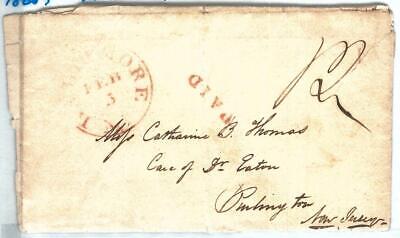 MORE
FEB
5
PAID
12
Miss Catharine B. Thomas
Care of Dr Eaton
Burlington
New Jersey